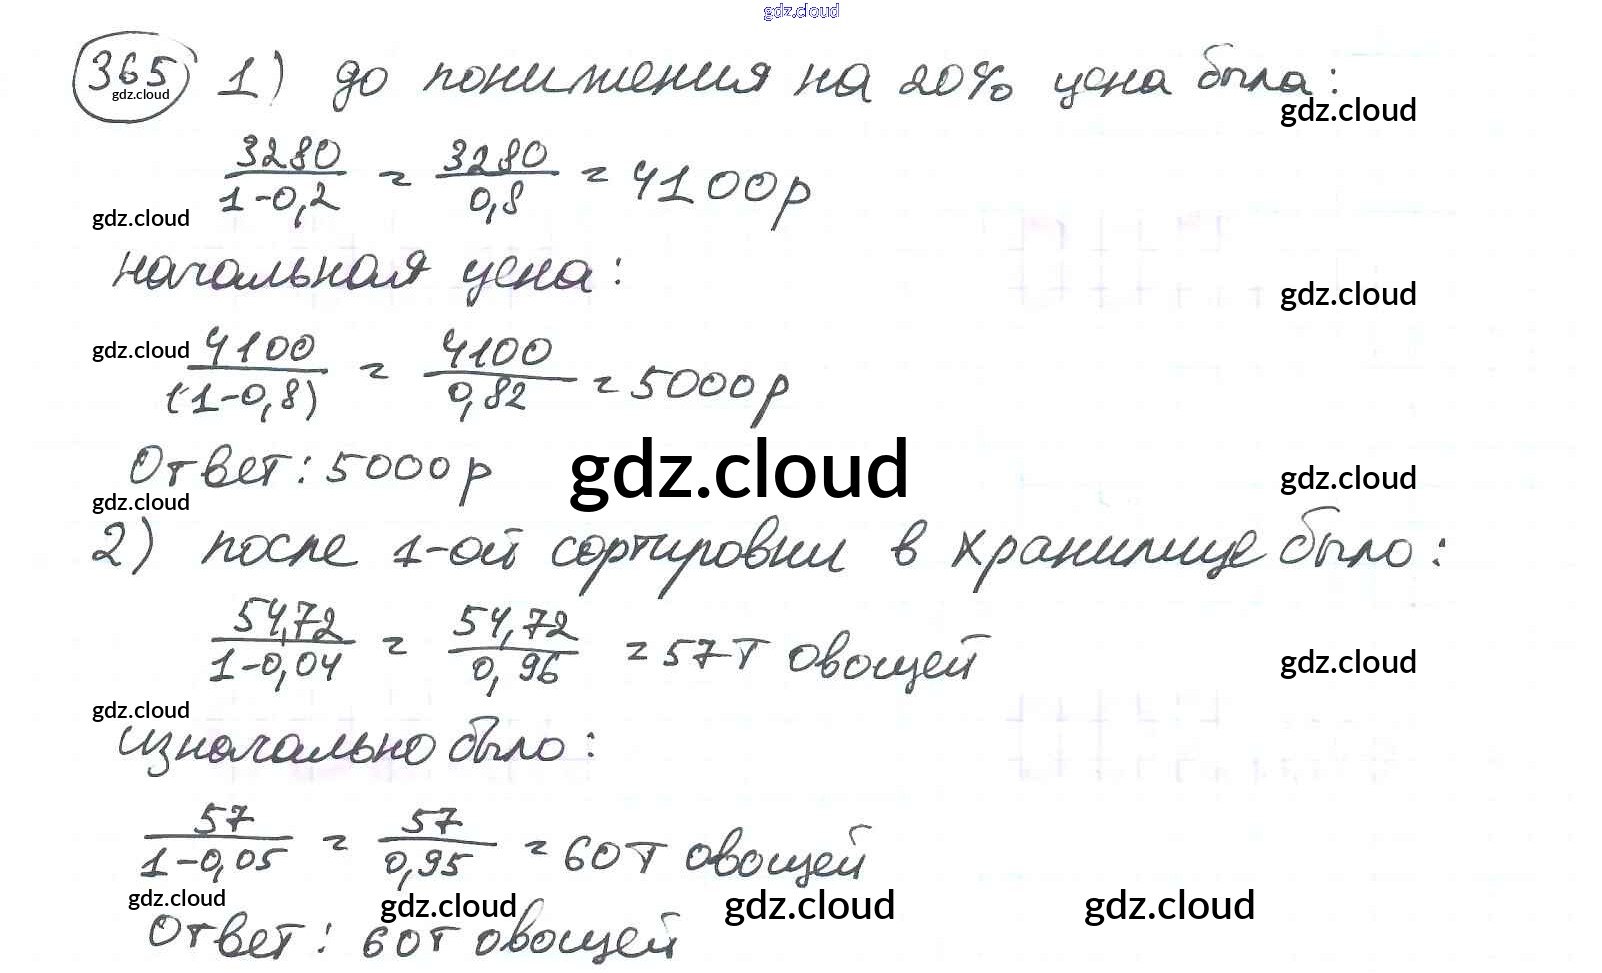 gdz.cloud
365 1) до понижения на 20% цена была:
gdz.cloud
gdz.cloud
3280/1-0,2 = 3280/0,8 = 4100р
gdz.cloud
начальная цена:
gdz.cloud
gdz.cloud
4100/(1-0,8) = 4100/0,82 = 5000р
Ответ: 5000р
gdz.cloud
gdz.cloud
gdz.cloud
2) после 1-ой сортировки в хранилище было:
54,72/1-0,04 = 54,72/0,96 = 57т овощей
gdz.cloud
gdz.cloud
изначально было:
57/1-0,05 = 57/0,95 = 60т овощей
gdz.cloud gdz.cloud gdz.cloud gdz.cloud
Ответ: 60т овощей